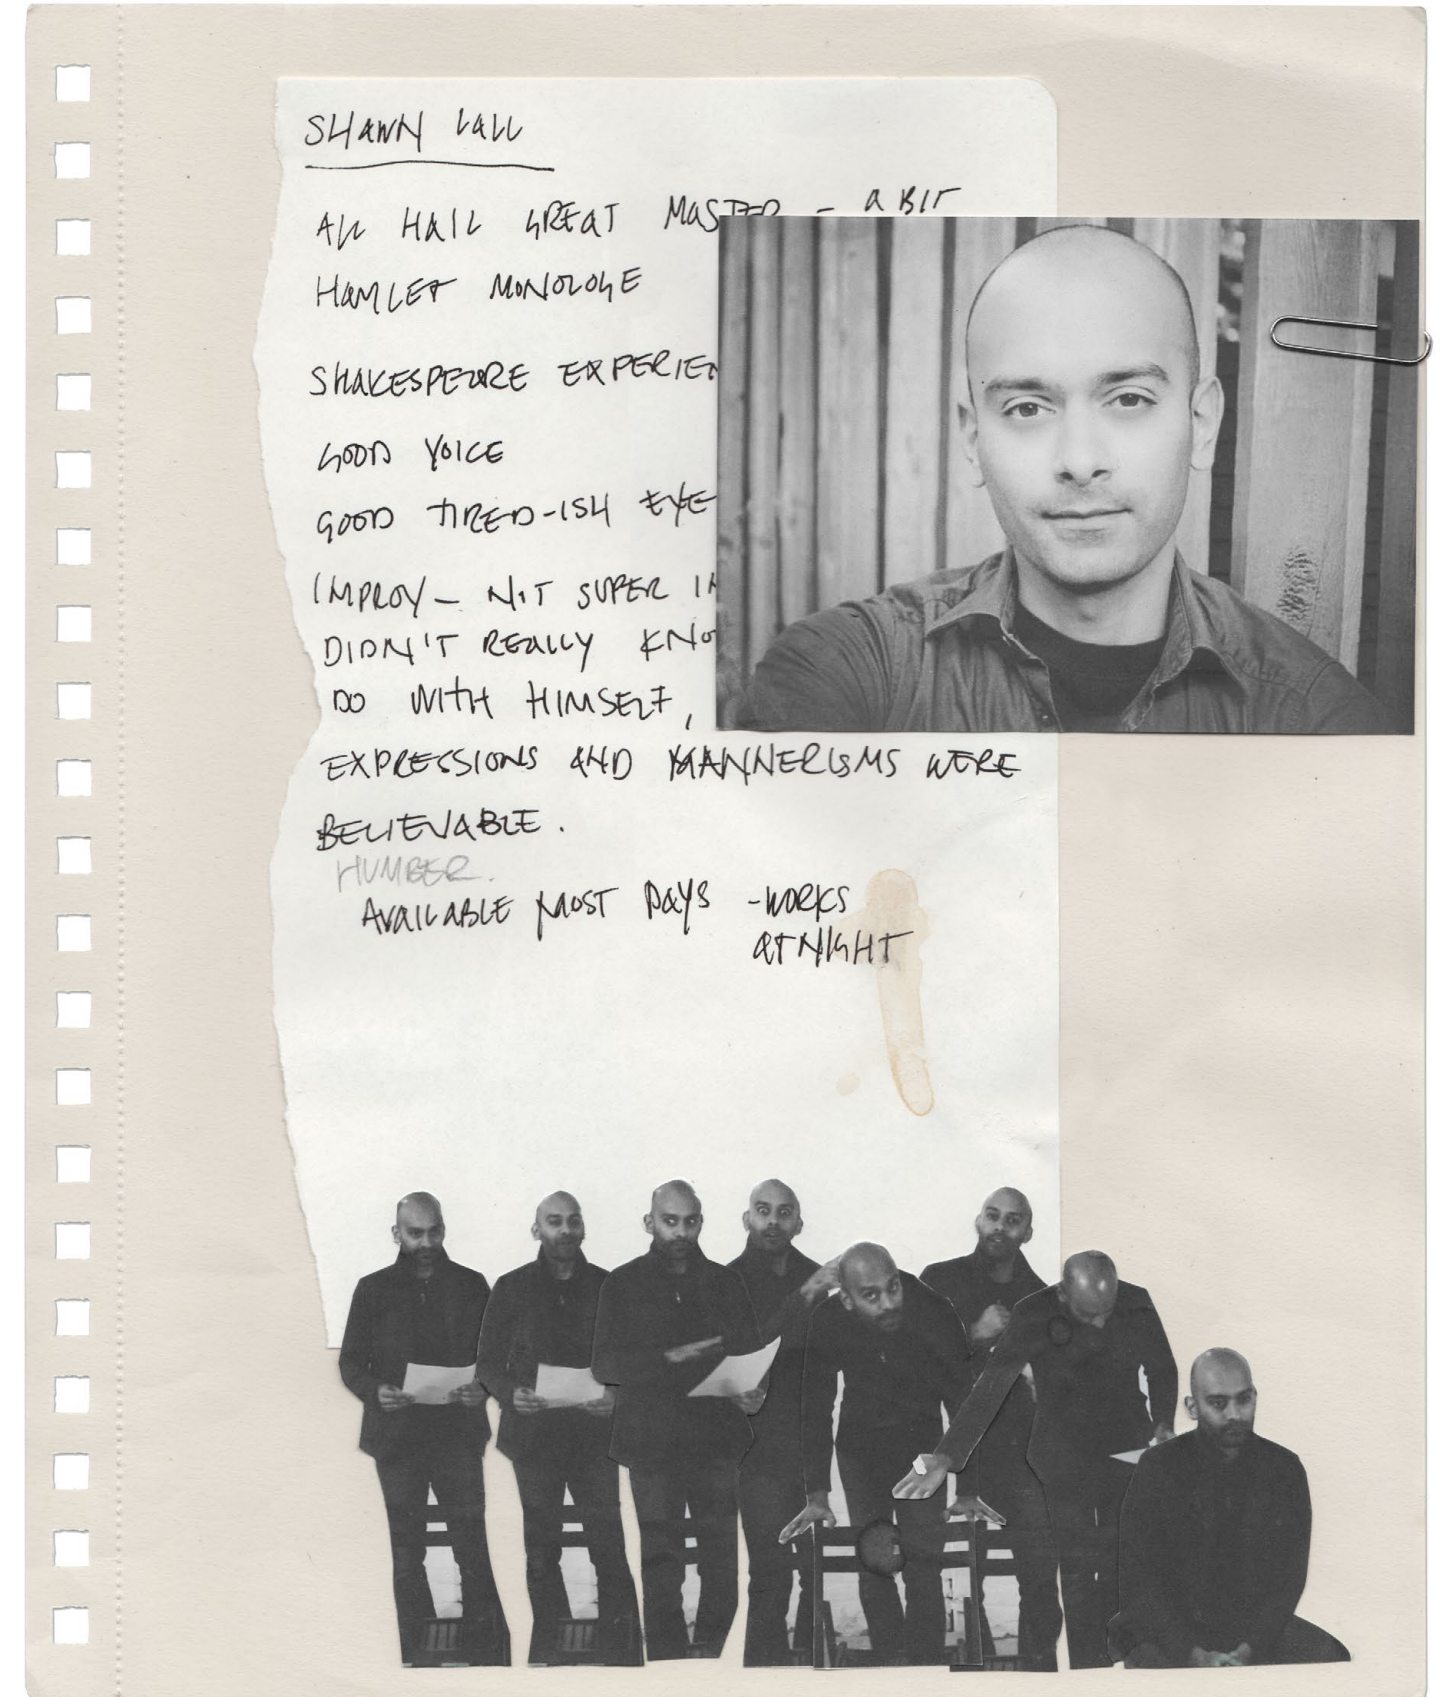 SHAWN LALL
ALL HAIL GREAT MASTER - A BIT
HAMLET MONOLOGE
SHAKESPEARE EXPERIEN
GOOD VOICE
GOOD TIRED-ISH EYE
IMPROV - NOT SUPER IN
DIDN'T REALLY KNO
DO WITH HIMSELF,
EXPRESSIONS AND MANNERISMS WERE
BELIEVABLE.
HUMBER.
AVAILABLE MOST DAYS - WORKS
AT NIGHT